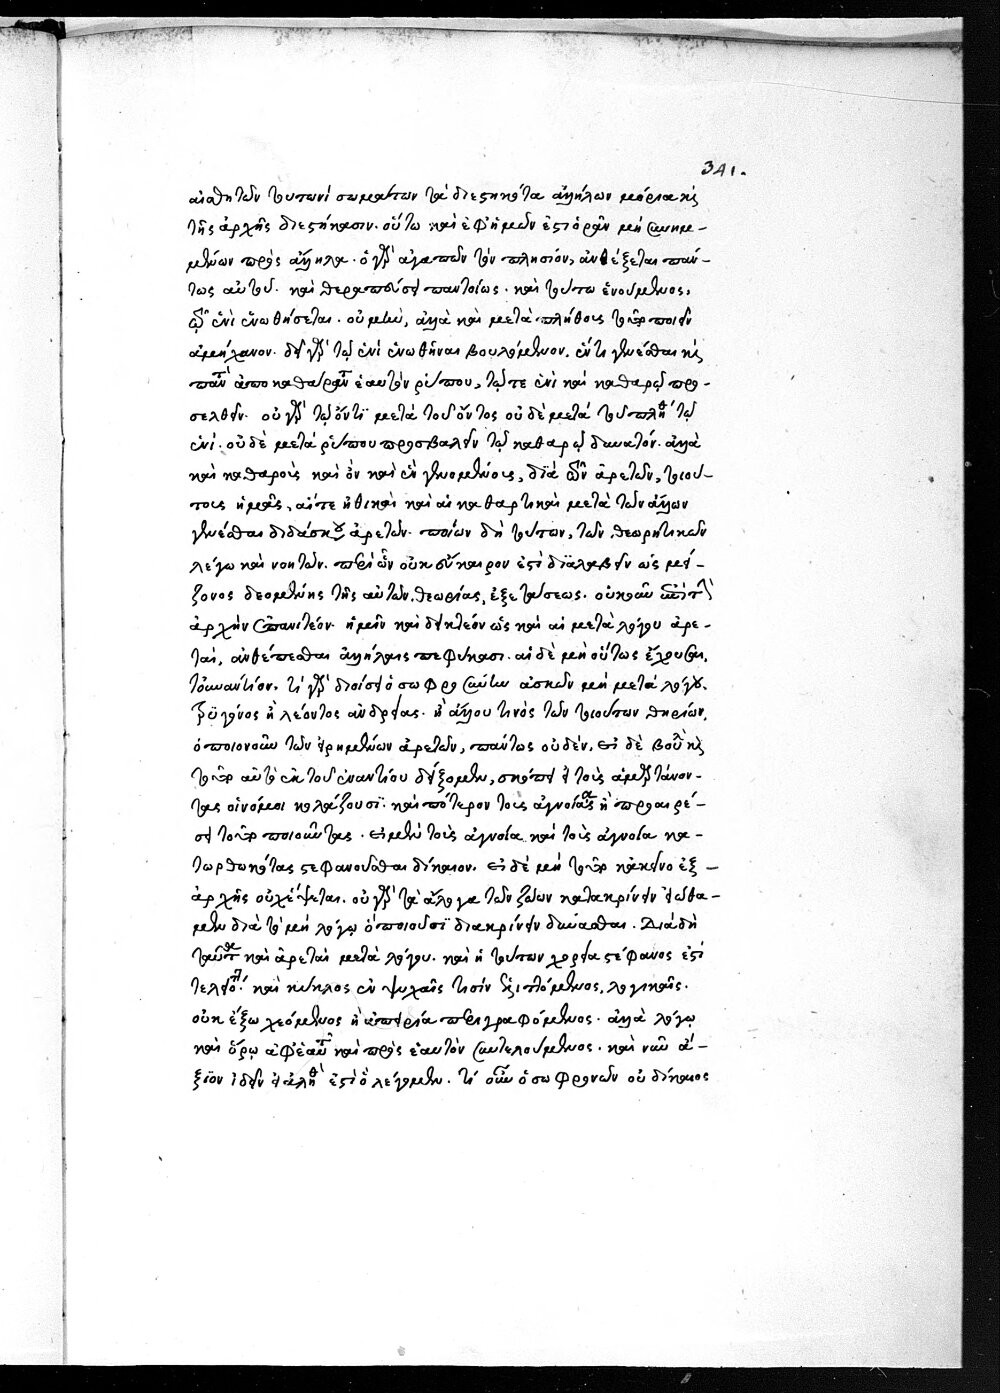 341.
αἰσθητῶν τουτωνὶ σωμάτων τὰ διεστηκότα ἀλλήλων μόρια κ
τῆς ἀρχῆς διεστήκασιν. οὕτω καὶ ἐφ' ἡμῶν ἐστὶ ὁρᾶν μὴ συνημ-
μένων πρὸς ἄλληλα. ὁ γὰρ ἀγαπῶν τὸν πλησίον, ἀνθέξεται πάν-
τως αὐτοῦ. καὶ θεραπεύσει παντοίως. καὶ τούτω ἑνούμενος,
τῷ ἑνὶ ἑνωθήσεται. οὐ μὴν, ἀλλὰ καὶ μετὰ πλήθους τοῦτο ποιεῖν
ἀμήχανον. δεῖ γὰρ τῷ ἑνὶ ἑνωθῆναι βουλόμενον, ἕν τι γενέσθαι καὶ
παντὸς ἀποκαθαίρειν ἑαυτὸν ῥύπου, ὥστε ἑνὶ καὶ καθαρῷ προ-
σελθεῖν. οὐ γὰρ τῷ ὄντι μετὰ τοῦ ὄντος οὐδὲ μετὰ τοῦ πλήθους τῷ
ἑνί. οὐδὲ μετὰ ῥύπου προσβαλεῖν τῷ καθαρῷ δυνατόν. ἀλλὰ
καὶ καθαροῖς καὶ ὂν καὶ ἓν γενομένοις, διὰ τῶν ἀρετῶν, τοιού-
τους ἡμᾶς, αἵτε ἠθικαὶ καὶ αἱ καθαρτικαὶ μετὰ τῶν ἄλλων
γενέσθαι διδάσκουσιν ἀρετῶν. ποίων δὴ τούτων, τῶν θεωρητικῶν
λέγω καὶ νοητῶν. περὶ ὧν οὐκ εὔκαιρον ἐστὶ διαλαβεῖν ὡς μεί-
ζονος δεομένης τῆς αὐτῶν θεωρίας, ἐξετάσεως. οὐκοῦν ἐπὶ τὴν
ἀρχὴν ἐπανιτέον. ἡμῖν καὶ δεικτέον ὡς καὶ αἱ μετὰ λόγου ἀρε-
ταὶ, ἀνθέπεσθαι ἀλλήλαις πεφύκασι. αἱ δὲ μὴ οὕτως ἔχουσαι,
τοὐναντίον. τί γὰρ διοίσει ὁ σωφροσύνην ἀσκῶν μὴ μετὰ λόγου.
τρυγόνος ἢ λέοντος ἀνδρείας. ἢ ἄλλου τινὸς τῶν τοιούτων θηρίων,
ὁποιονοῦν τῶν εἰρημένων ἀρετῶν, πάντως οὐδέν. εἰ δὲ βούλει καὶ
τοῦτο αὐτὸ ἐκ τοῦ ἐναντίου δείξομεν, σκόπει εἰ τοὺς ἁμαρτάνον-
τας οἱ νόμοι κολάζουσι. καὶ πότερον τοὺς ἀγνοίας ἢ προαιρέ-
σει τοῦτο ποιοῦντας. εἰ μὲν τοὺς ἀγνοία καὶ τοὺς ἀγνοία κα-
τωρθωκότας στεφανοῦσθαι δίκαιον. εἰ δὲ μὴ τοῦτο κἀκεῖνο ἐξ
ἀρχῆς οὐχ ἕψεται. οὐ γὰρ τὰ ἄλογα τῶν ζώων κατακρίνειν εἰώθα-
μεν διὰ τὸ μὴ λόγῳ ὁποιοῦσι διακρίνειν δύνασθαι. Διὰ δὴ
ταῦτα καὶ ἀρεταὶ μετὰ λόγου. καὶ ἡ τούτων χορεία στέφανος ἐστὶ
τελειότητος καὶ κύκλος ἐν ψυχαῖς τισὶν ἐξιπλόμενος, λογικαῖς.
οὐκ ἔξω χεόμενος ἢ ἀπειρία περιγραφόμενος. ἀλλὰ λόγῳ
καὶ ὅρῳ ἀφ' ἑαυτοῦ καὶ πρὸς ἑαυτὸν συντελούμενος. καὶ νῦν ἄ-
ξιον ἰδεῖν εἰ ἀληθὲς ἐστὶ ὃ λέγομεν. τί οὖν ὁ σωφρονῶν οὐ δίκαιος